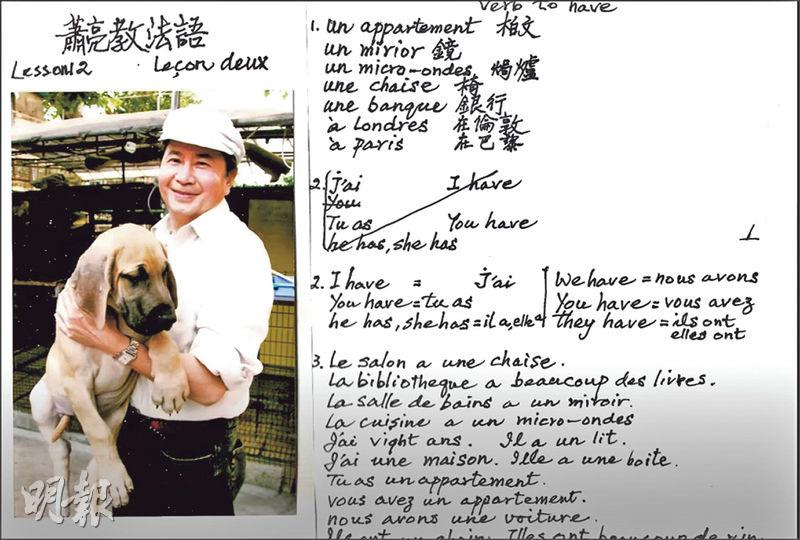 蕭亮教法語
Lesson 2 · Leçon deux
明報
verb to have
1. un appartement 柏文
un mirior 鏡
un micro-ondes 焗爐
une chaise 椅
une banque 銀行
à Londres 在倫敦
à paris 在巴黎
2. j'ai I have
You
Tu as You have
he has, she has
1
2. I have = j'ai
You have = tu as
he has, she has = il a, elle a
We have = nous avons
You have = vous avez
They have = ils ont
elles ont
3. Le salon a une chaise.
La bibliotheque a beaucoup des livres.
La salle de bains a un miroir.
La cuisine a un micro-ondes
J'ai vight ans. Il a un lit.
J'ai une maison. Ille a une boite.
Tu as un appartement.
vous avez un appartement.
nous avons une voiture.
ont un Illes ont beaucoup de vin.